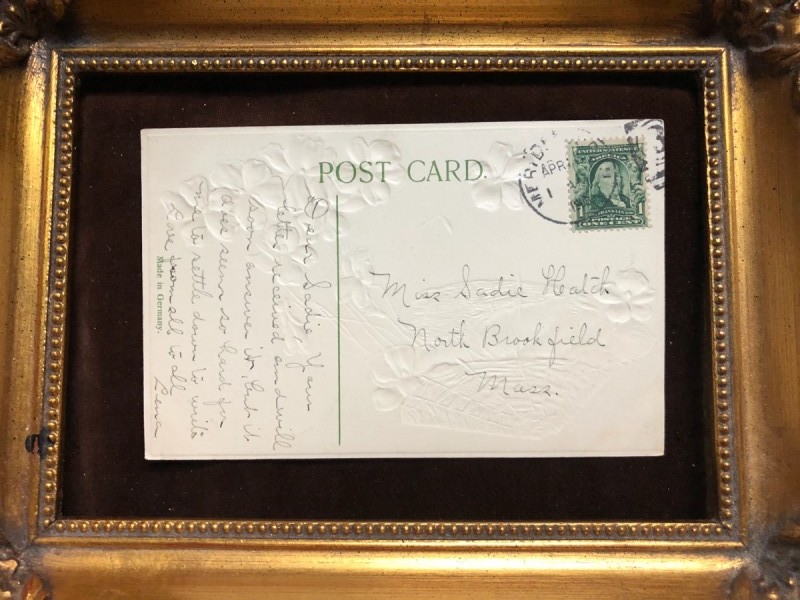 POST CARD.
MERIDE
APR
1
UNITED STATES OF
AMERICA
1
POSTAGE
ONE CENT
Miss Sadie Hatch
North Brookfield
Mass.
Dear Sadie, Your
letter received and will
soon answer it, but it
does seem so hard for
me to settle down to write
Love from all to all
Lena
Made in Germany.